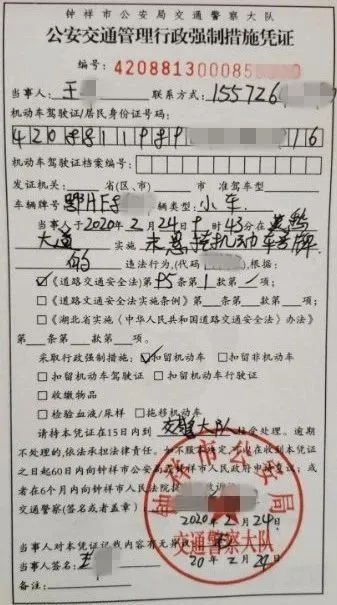 钟祥市公安局交通警察大队
公安交通管理行政强制措施凭证
编号：4208813000085
当事人：王 联系方式：155726
机动车驾驶证/居民身份证号码：
4208811989 16
机动车驾驶证档案编号：
发证机关： 省(区、市) 市 准驾车型
车辆牌号 鄂H 车辆类型：小车
当事人于2020年2月24日 时43分在
大道 实施 未悬挂机动车号牌
的 违法行为,(代码 ),根据：
☑《道路交通安全法》第95条第1款第 项；
□《道路交通安全法实施条例》第 条第 款第 项；
□《湖北省实施〈中华人民共和国道路交通安全法〉办法》
第 条第 款第 项；
采取行政强制措施：☑扣留机动车 □扣留非机动车
□扣留机动车驾驶证 □扣留机动车行驶证
□收缴物品
□检验血液/尿样 □拖移机动车
请持本凭证在15日内到 交警大队 接受处理。逾期
不处理的,依法承担法律责任。如不服本决定,可以在收到本凭证
之日起60日内向钟祥市公安局或钟祥市人民政府申请复议；或
者在6个月内向钟祥市人民法院提
交通警察(签名或者盖章)
2020年2月24日
当事人对本凭证记载内容有无异议
当事人签名：王 20 年2月24日
备注：
钟祥市公安局
交通警察大队